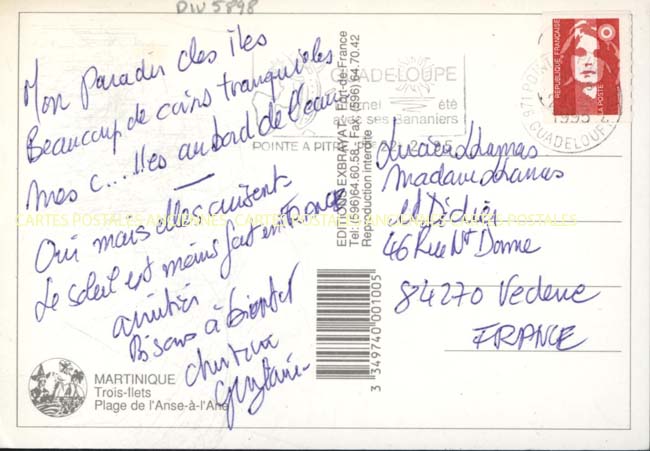 DIV 5898
Mon Paradis des îles
Beaucoup de coins tranquilles
mas c....lles au bord de l'eau
Oui mais elles cuisent
Le soleil est moins fait en FRANCE
amitiés
Bisous à bientot
Guylaine
MARTINIQUE
Trois-Ilets
Plage de l'Anse-à-l'Ane
EDITIONS EXBRAYAT - Fort-de-France
Tel: (596)64.60.58 - Fax: (596)64.70.42
Reproduction interdite
3 349740 001005
GUADELOUPE
été
avec ses Bananiers
POINTE A PITRE
REPUBLIQUE FRANÇAISE
LA POSTE
971 POINT
GUADELOUPE
Lucien Lhamas
Madame Lhamas
et Didier
46 Rue Nt Dame
84270 Vedene
FRANCE
CARTES POSTALES ANCIENNES CARTES POSTALES ANCIENNES CARTES POSTALES